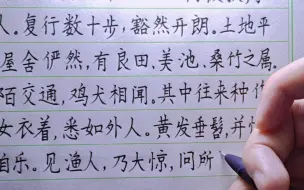 人。复行数十步，豁然开朗。土地平
屋舍俨然，有良田、美池、桑竹之属.
陌交通，鸡犬相闻。其中往来种作
女衣着，悉如外人。黄发垂髫，并怡
自乐。见渔人，乃大惊，问所